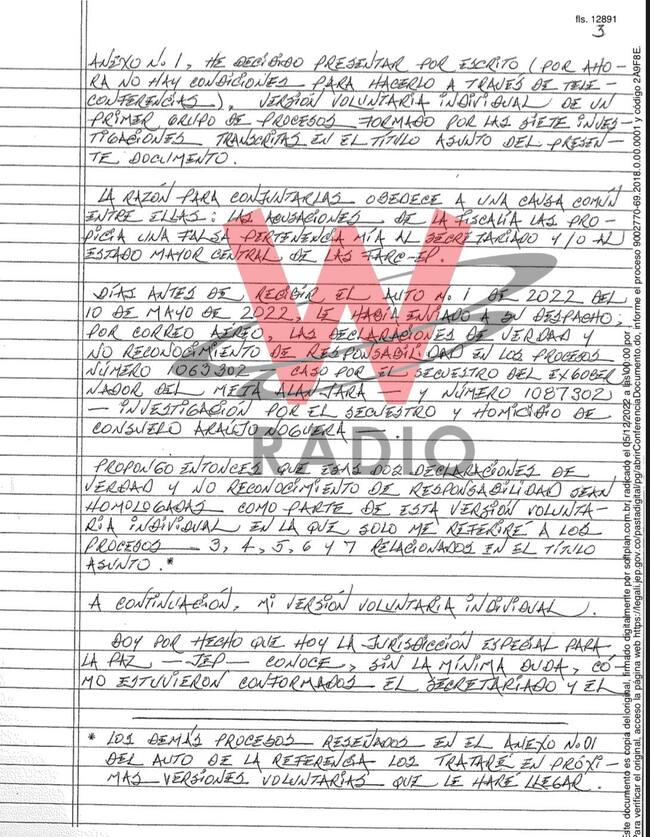 fls. 12891
3
ANEXO No. 1, HE DECIDIDO PRESENTAR POR ESCRITO (POR AHO-
RA NO HAY CONDICIONES PARA HACERLO A TRAVÉS DE TELE-
CONFERENCIAS), VERSIÓN VOLUNTARIA INDIVIDUAL DE UN
PRIMER GRUPO DE PROCESOS FORMADO POR LAS SIETE INVES-
TIGACIONES TRANSCRITAS EN EL TÍTULO ASUNTO DEL PRESEN-
TE DOCUMENTO.
LA RAZÓN PARA CONJUNTARLAS OBEDECE A UNA CAUSA COMÚN
ENTRE ELLAS: LAS ACUSACIONES DE LA FISCALÍA LAS PRO-
PICIA UNA FALSA PERTENENCIA MÍA AL SECRETARIADO Y/O AL
ESTADO MAYOR CENTRAL DE LAS FARC-EP.
DÍAS ANTES DE RECIBIR EL AUTO No. 1 DE 2022 DEL
10 DE MAYO DE 2022, LE HABÍA ENVIADO A SU DESPACHO,
POR CORREO AÉREO, LAS DECLARACIONES DE VERDAD Y
NO RECONOCIMIENTO DE RESPONSABILIDAD EN LOS PROCESOS
NÚMERO 1063302 — CASO POR EL SECUESTRO DEL EXGOBER
NADOR DEL META ALAN JARA — Y NÚMERO 1087302
— INVESTIGACIÓN POR EL SECUESTRO Y HOMICIDIO DE
CONSUELO ARAÚJO NOGUERA —.
PROPONGO ENTONCES QUE ESAS DOS DECLARACIONES DE
VERDAD Y NO RECONOCIMIENTO DE RESPONSABILIDAD SEAN
HOMOLOGADAS COMO PARTE DE ESTA VERSIÓN VOLUNTA-
RIA INDIVIDUAL EN LA QUE SOLO ME REFERIRÉ A LOS
PROCESOS 3, 4, 5, 6 Y 7 RELACIONADOS EN EL TÍTULO
ASUNTO.*
A CONTINUACIÓN, MI VERSIÓN VOLUNTARIA INDIVIDUAL.
DOY POR HECHO QUE HOY LA JURISDICCIÓN ESPECIAL PARA
LA PAZ — JEP — CONOCE, SIN LA MÍNIMA DUDA, CÓ-
MO ESTUVIERON CONFORMADOS EL SECRETARIADO Y EL
* LOS DEMÁS PROCESOS RESEÑADOS EN EL ANEXO No.01
DEL AUTO DE LA REFERENCIA LOS TRATARÉ EN PRÓXI-
MAS VERSIONES VOLUNTARIAS QUE LE HARÉ LLEGAR.
W
RADIO
Este documento es copia del original, firmado digitalmente por softplan.com.br, radicado el 05/12/2022 a las 00:00 por
Para verificar el original, acceso la página web https://legali.jep.gov.co/pastadigital/pg/abrirConferenciaDocumento.do, informe el proceso 9002770-69.2018.0.00.0001 y código 2A9F8E.